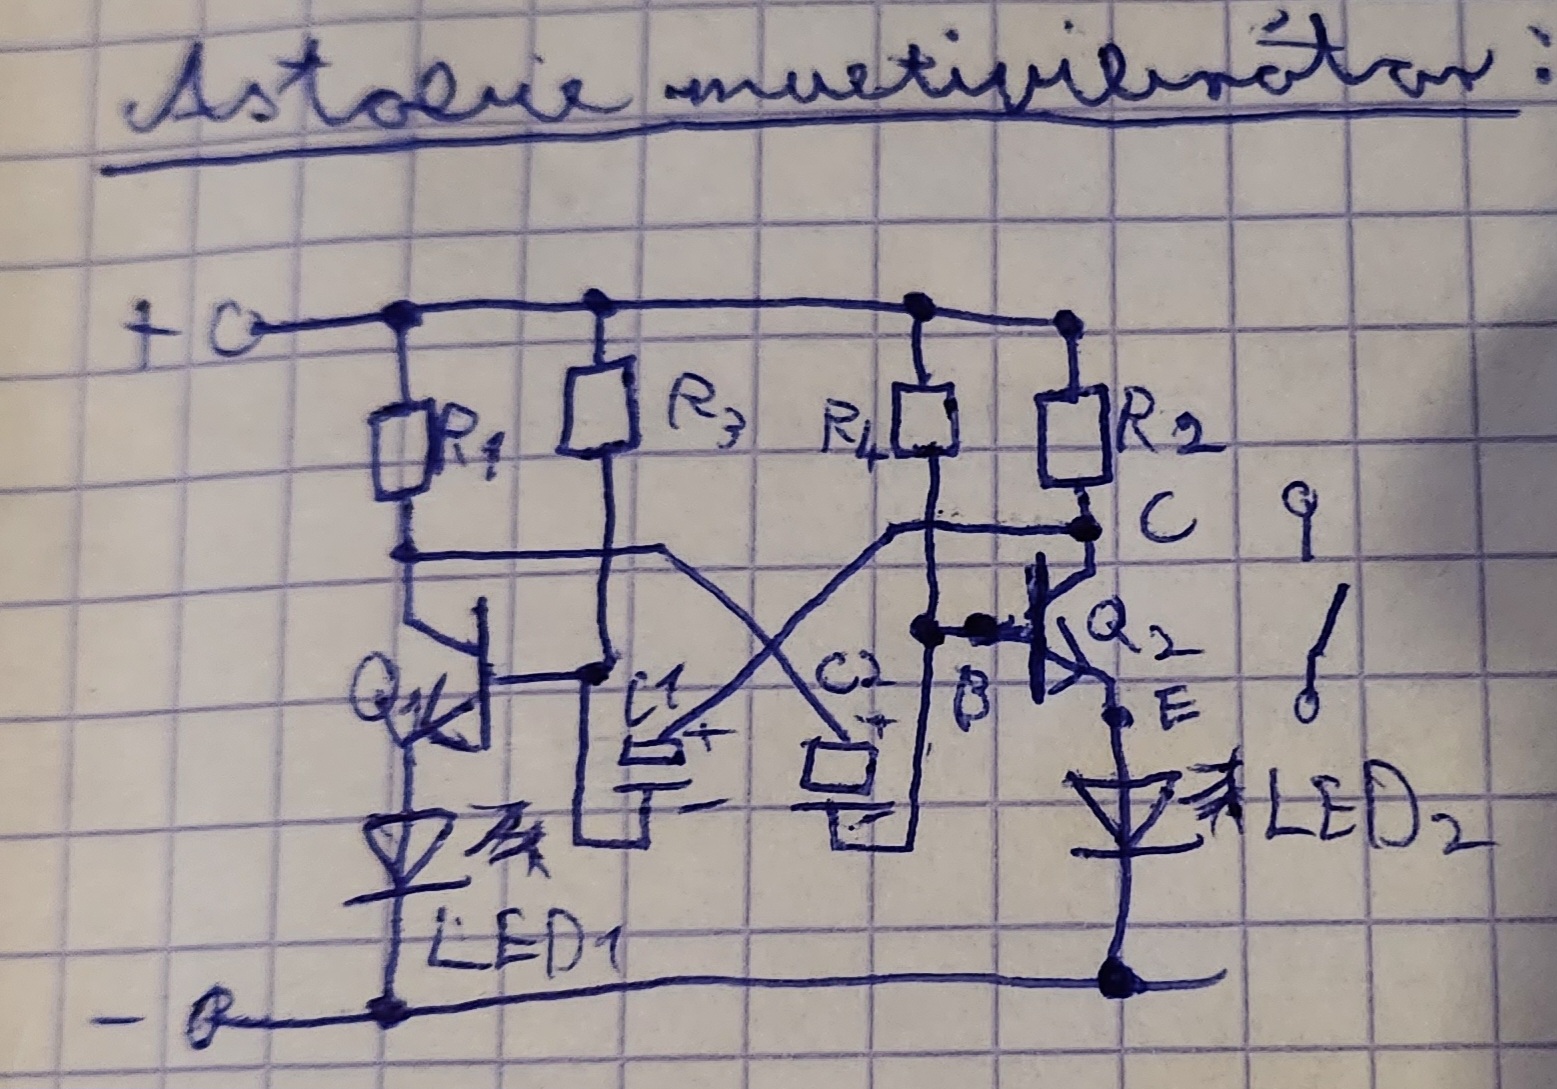 Astabil multivibrátor:
+
R1 R3 R4 R2
C
Q1 C1 + C2 + B Q2 E
-
LED1 LED2
-